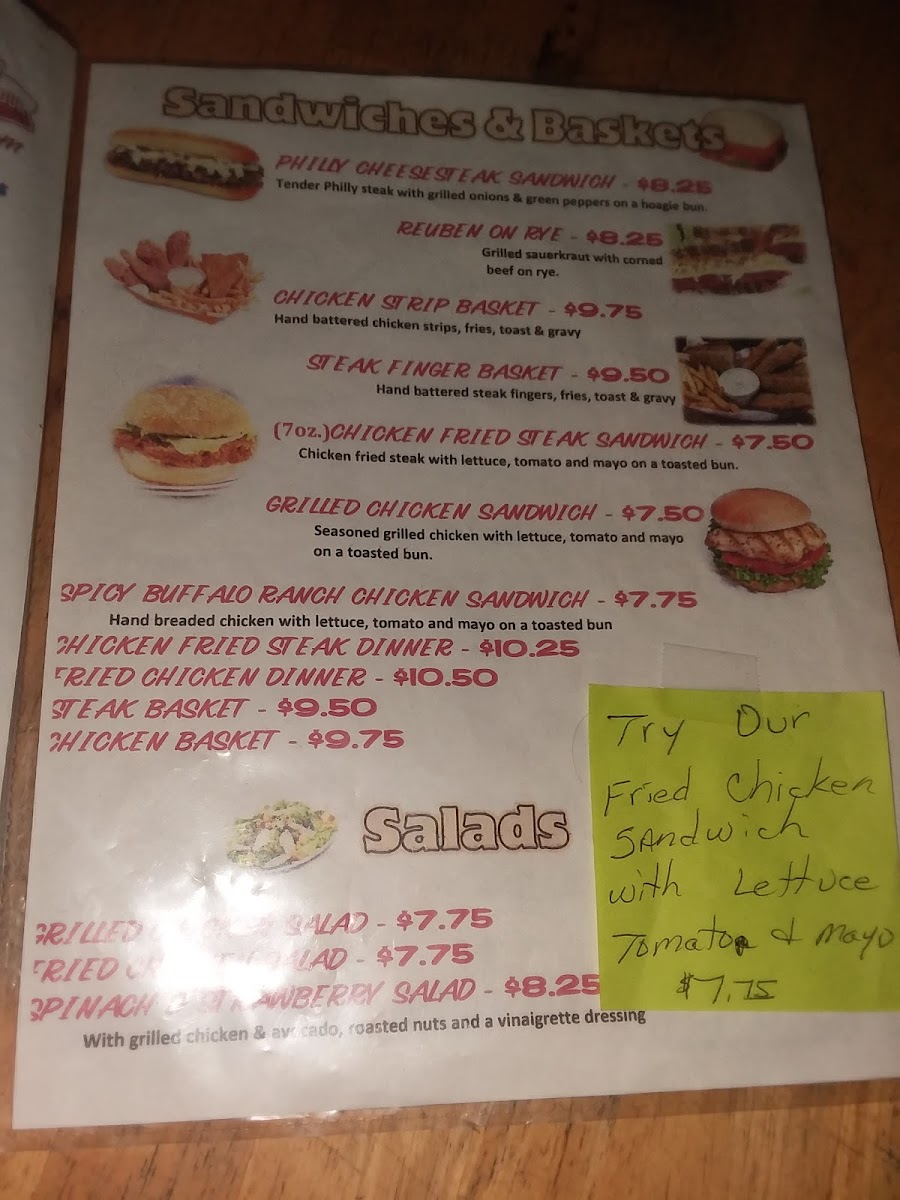 Sandwiches & Baskets
PHILLY CHEESESTEAK SANDWICH - $8.25
Tender Philly steak with grilled onions & green peppers on a hoagie bun.
REUBEN ON RYE - $8.25
Grilled sauerkraut with corned
beef on rye.
CHICKEN STRIP BASKET - $9.75
Hand battered chicken strips, fries, toast & gravy
STEAK FINGER BASKET - $9.50
Hand battered steak fingers, fries, toast & gravy
(7oz.)CHICKEN FRIED STEAK SANDWICH - $7.50
Chicken fried steak with lettuce, tomato and mayo on a toasted bun.
GRILLED CHICKEN SANDWICH - $7.50
Seasoned grilled chicken with lettuce, tomato and mayo
on a toasted bun.
SPICY BUFFALO RANCH CHICKEN SANDWICH - $7.75
Hand breaded chicken with lettuce, tomato and mayo on a toasted bun
CHICKEN FRIED STEAK DINNER - $10.25
FRIED CHICKEN DINNER - $10.50
STEAK BASKET - $9.50
CHICKEN BASKET - $9.75
Salads
GRILLED CHICKEN SALAD - $7.75
FRIED CHICKEN SALAD - $7.75
SPINACH & STRAWBERRY SALAD - $8.25
With grilled chicken & avocado, roasted nuts and a vinaigrette dressing
Try Our
Fried Chicken
SANdwich
with Lettuce
Tomato & Mayo
$7.75